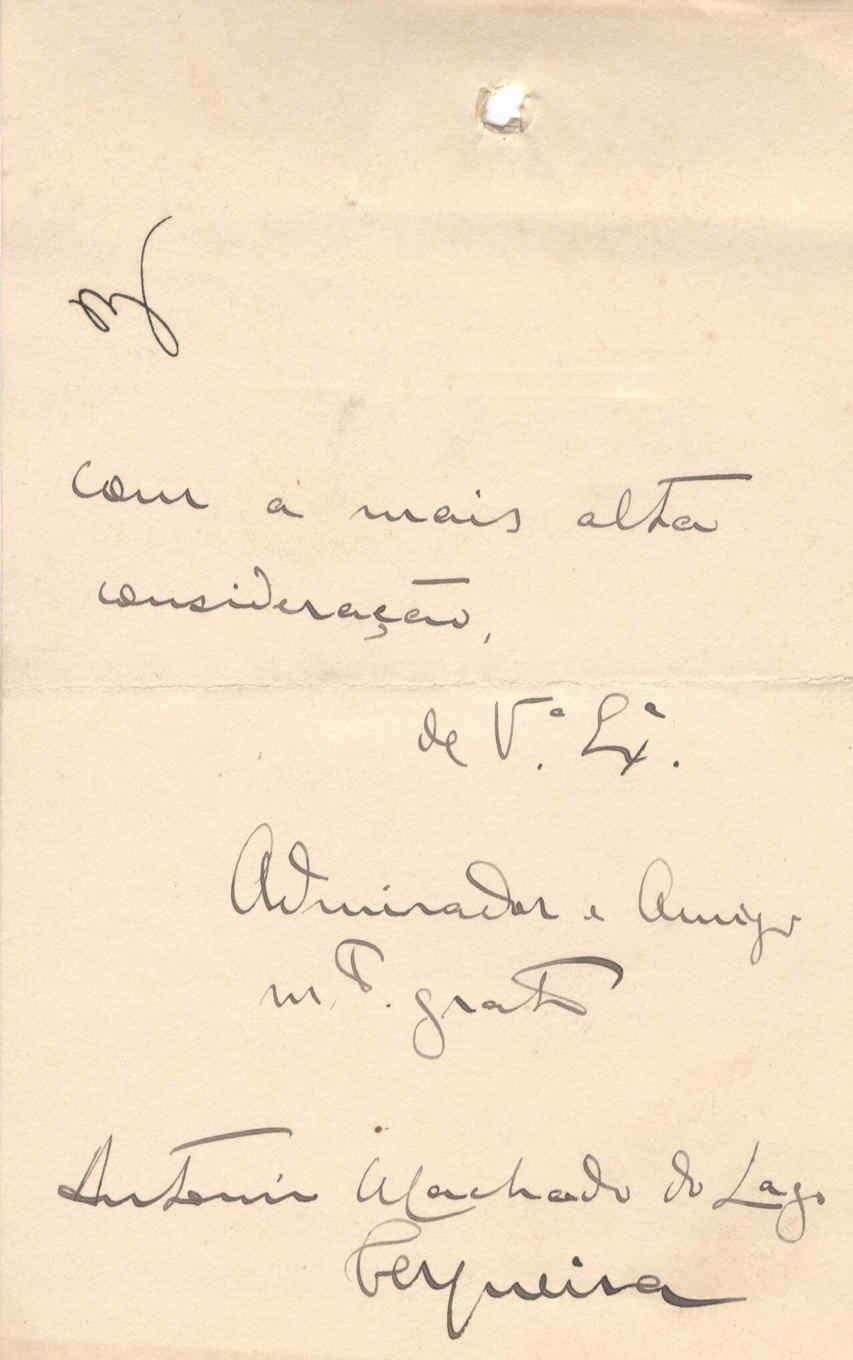 com a mais alta
consideração,
de V.ª Exª.
Admirador e Amigo
m.to. grato
Antonio Machado do Lago
Cerqueira